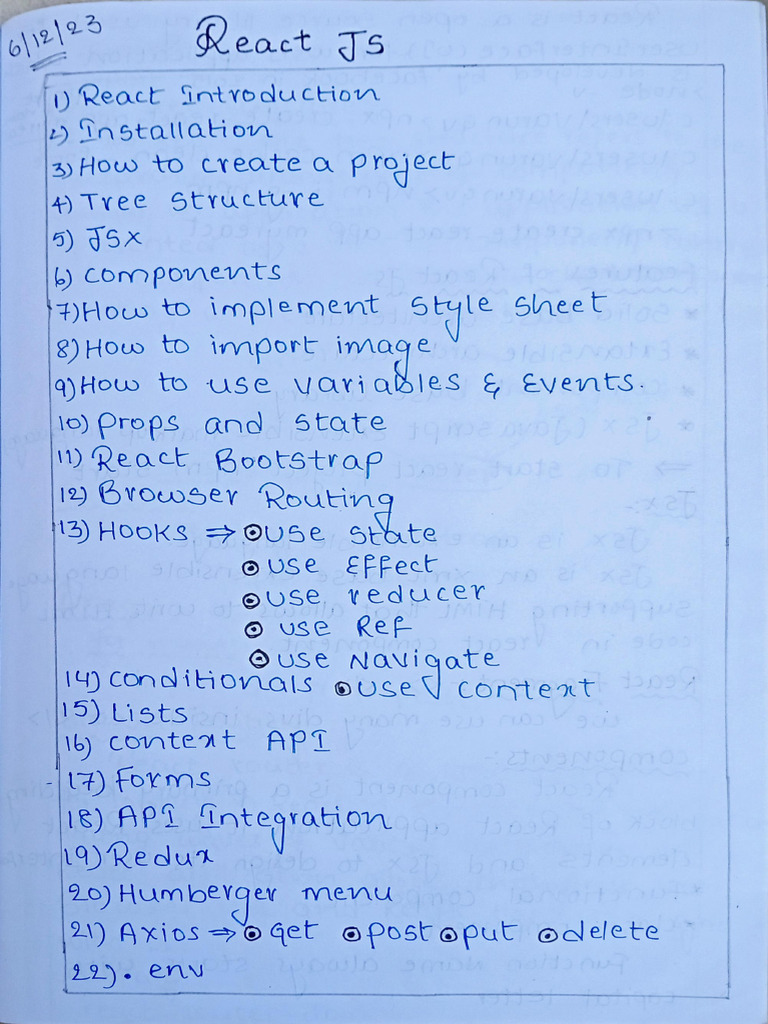 6/12/23
React JS
1) React Introduction
2) Installation
3) How to create a project
4) Tree structure
5) JSX
6) components
7) How to implement style sheet
8) How to import image
9) How to use variables & Events.
10) props and state
11) React Bootstrap
12) Browser Routing
13) HOOKS ⇒ ⊙ use state
⊙ use Effect
⊙ use reducer
⊙ use Ref
⊙ use Navigate
14) conditionals ⊙ use context
15) Lists
16) context API
17) Forms
18) API Integration
19) Redux
20) Humberger menu
21) Axios ⇒ ⊙ get ⊙ post ⊙ put ⊙ delete
22) . env